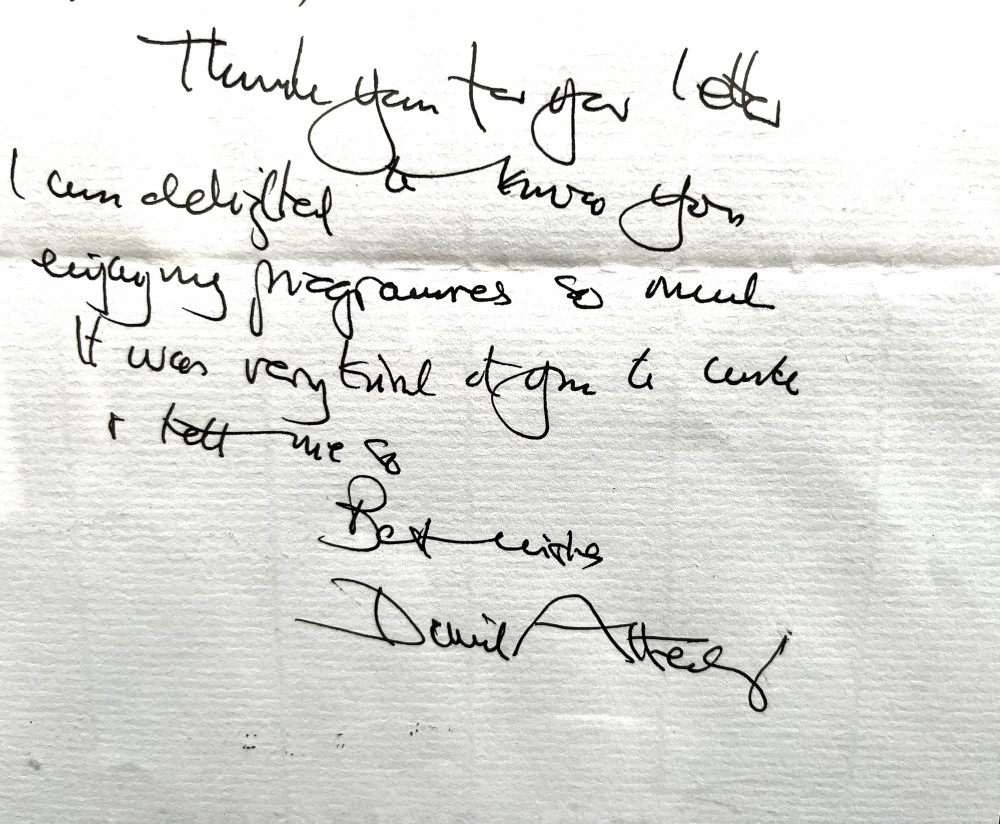 Thank you for your letter
I am delighted to know you
enjoy my programmes so much
It was very kind of you to write
+ tell me so
Best wishes
David Attenborough